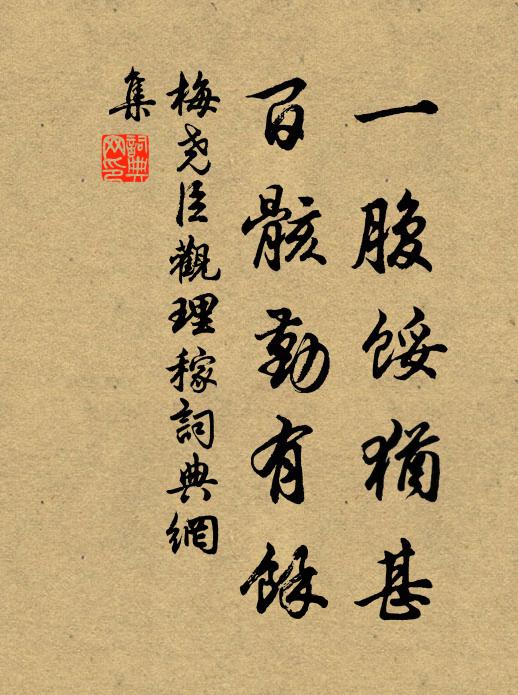 一腹餒猶甚
百骸勤有餘
梅堯臣觀理稼詞典網
集
詞典
网印